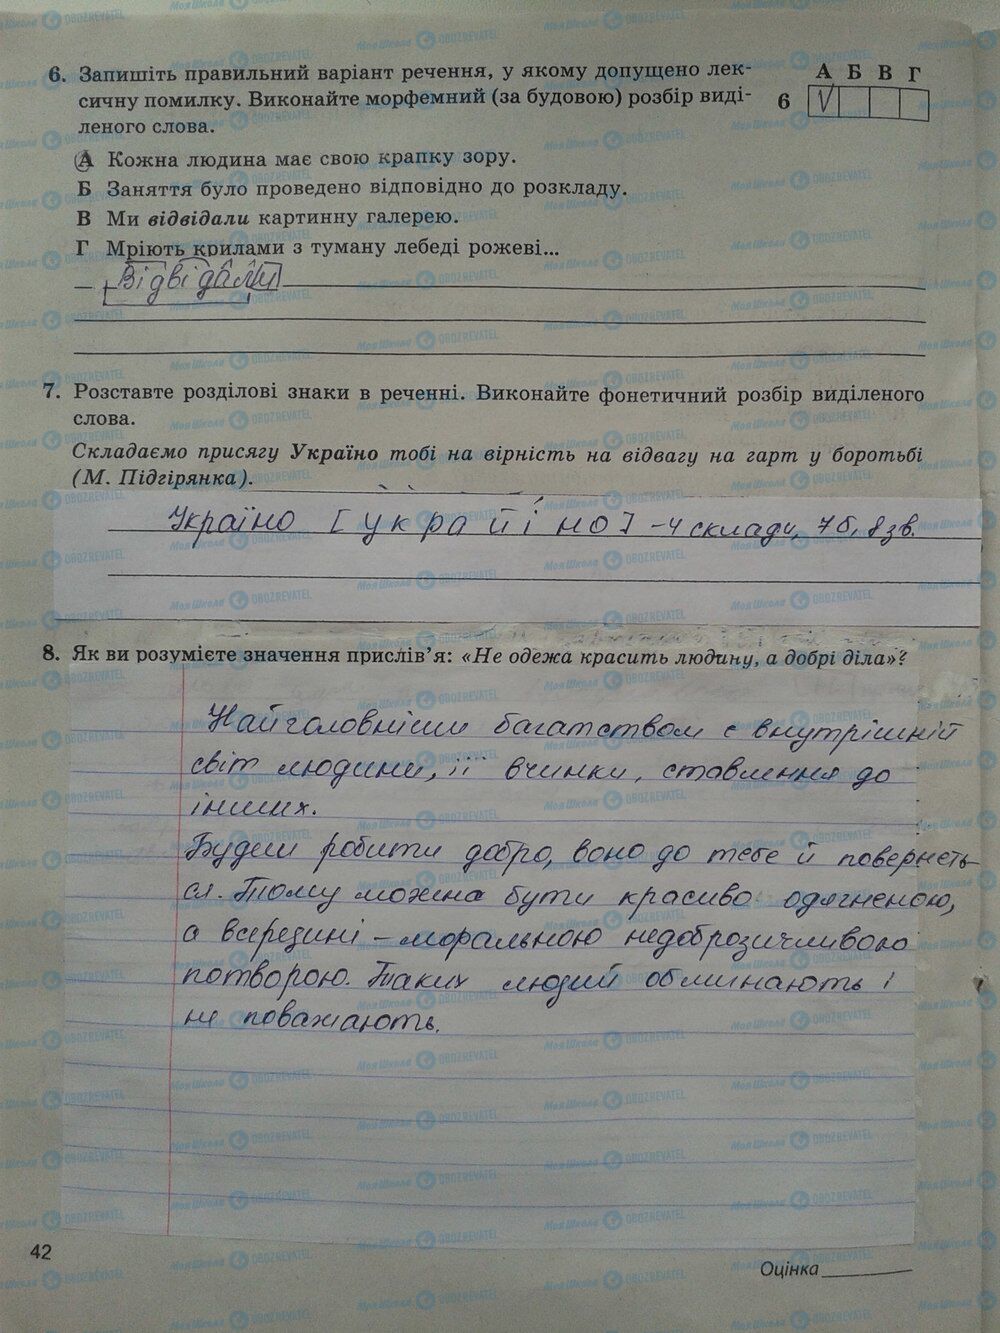 6. Запишіть правильний варіант речення, у якому допущено лек-
сичну помилку. Виконайте морфемний (за будовою) розбір виді-
леного слова.
А Б В Г
6 V
А Кожна людина має свою крапку зору.
Б Заняття було проведено відповідно до розкладу.
В Ми відвідали картинну галерею.
Г Мріють крилами з туману лебеді рожеві...
Відвідали
7. Розставте розділові знаки в реченні. Виконайте фонетичний розбір виділеного
слова.
Складаємо присягу Україно тобі на вірність на відвагу на гарт у боротьбі
(М. Підгірянка).
Україно [украйіно] – 4 склади, 7б, 8зв.
8. Як ви розумієте значення прислів’я: «Не одежа красить людину, а добрі діла»?
Найголовнішим багатством є внутрішній
світ людини, її вчинки, ставлення до
інших.
Будеш робити добро, воно до тебе й повернеть-
ся. Тому можна бути красиво одягненою,
а всередині – моральною недоброзичливою
потворою. Таких людей обминають і
не поважають.
42
Оцінка
МояШкола OBOZREVATEL